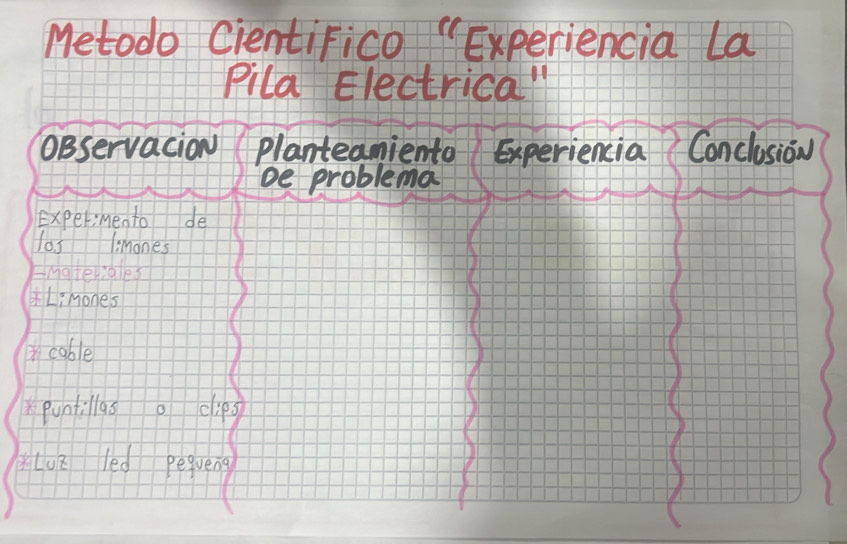 Metodo Cientifico "Experiencia La
Pila Electrica"
Observacion
Planteamiento
De problema
Experiencia
Conclusión
Experimento de
los limones
-materiales
* Limones
* cable
* puntillas o clips
* Luz led pequeña